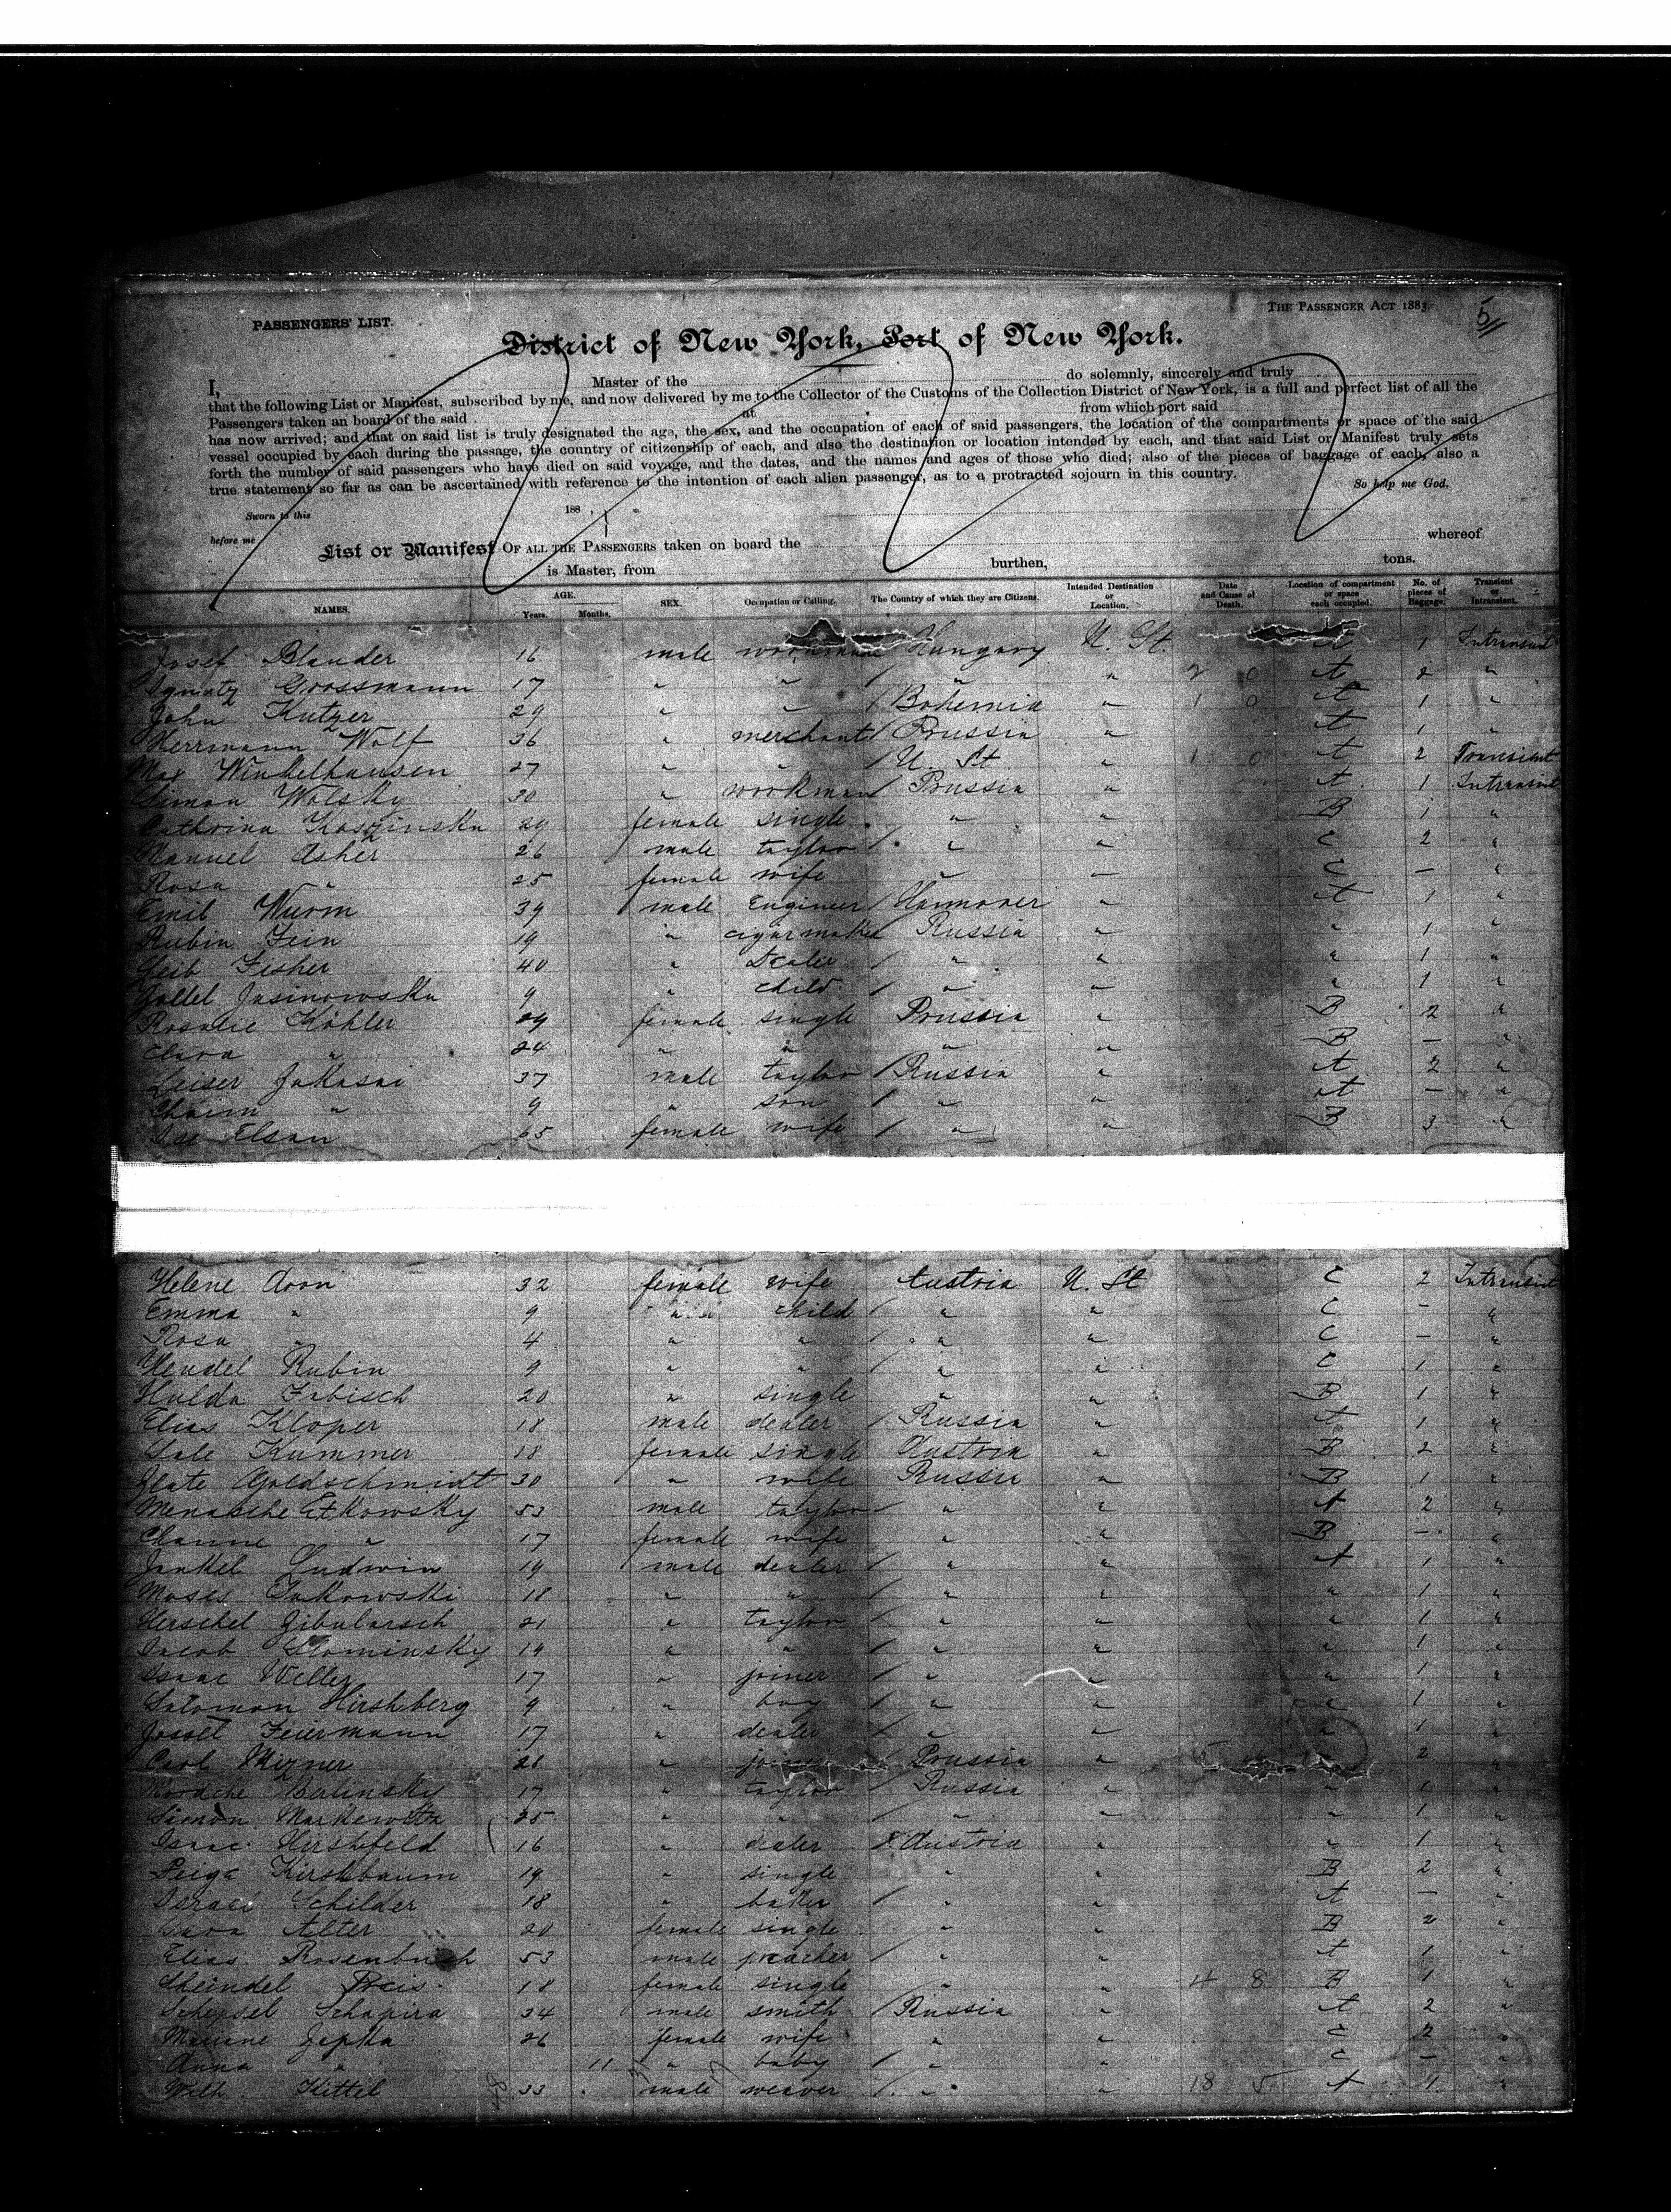 PASSENGERS' LIST.
THE PASSENGER ACT 1883.
5
District of New York, Port of New York.
I, Master of the do solemnly, sincerely and truly
that the following List or Manifest, subscribed by me, and now delivered by me to the Collector of the Customs of the Collection District of New York, is a full and perfect list of all the
Passengers taken an board of the said at from which port said
has now arrived; and that on said list is truly designated the age, the sex, and the occupation of each of said passengers, the location of the compartments or space of the said
vessel occupied by each during the passage, the country of citizenship of each, and also the destination or location intended by each, and that said List or Manifest truly sets
forth the number of said passengers who have died on said voyage, and the dates, and the names and ages of those who died; also of the pieces of baggage of each, also a
true statement so far as can be ascertained with reference to the intention of each alien passenger, as to a protracted sojourn in this country. So help me God.
Sworn to this 188 ,
before me
List or Manifest OF ALL THE PASSENGERS taken on board the whereof
is Master, from burthen, tons.
NAMES. AGE. Years. Months. SEX. Occupation or Calling. The Country of which they are Citizens. Intended Destination or Location. Date and Cause of Death. Location of compartment or space each occupied. No. of pieces of Baggage. Transient or Intransient.
Josef Blander 16 male workman Hungary U. St. A 1 Intransient
Ignatz Grossmann 17 " " " " 2 0 A 2 "
John Kutzer 29 " " Bohemia " 1 0 A 1 "
Herrmann Wolf 36 " merchant Prussia " A 1 "
Max Winkelhausen 27 " " U. St " 1 0 A 2 Transient
Simon Wolsky 30 " workman Prussia " A 1 Intransient
Cathrina Koszinska 29 female single " " B 1 "
Manuel Asher 26 male taylor " " C 2 "
Rosa " 25 female wife " " C - "
Emil Wurm 39 male Engineer Hannover " A 1 "
Rubin Fein 19 " cigarmaker Russia " " 1 "
Leib Fisher 40 " Dealer " " " 1 "
Jasinowska 9 " child " " " 1 "
Rosalie Köhler 29 female single Prussia " B 2 "
Clara " 24 " " " " B - "
Leiser Jakasai 37 male taylor Russia " A 2 "
Chaim " 9 " son " " A - "
Elsan 65 female wife " " B 3 "
Helene Aron 32 female wife Austria U. St C 2 Intransient
Emma " 9 " " child " " C - "
Rosa " 4 " " " " C - "
Hendel Rubin 9 " " " " C 1 "
Hulda Fabisch 20 " single " " B 1 "
Elias Kloper 18 male dealer Russia " A 1 "
Sale Kummer 18 female single Austria " B 2 "
Zlate Goldschmidt 30 " wife Russia " B 1 "
Menasche Etkowsky 53 male taylor " " A 2 "
Channe " 17 female wife " " B - "
Jankel Ludwin 19 male dealer " " A 1 "
Moses Jakowski 18 " " " " " 1 "
Herschel Zibularsch 21 " taylor " " " 1 "
Jacob Slominsky 19 " " " " " 1 "
Isaac Weller 17 " joiner " " " 1 "
Salomon Hirshberg 9 " boy " " " 1 "
Jossel Feiermann 17 " dealer " " " 1 "
Carl Mizner 28 " joiner Prussia " 2 "
Mordche Berlinsky 17 " taylor Russia " " 1 "
Simon Markewitz 25 " " " " " 1 "
Isaac Hirshfeld 16 " dealer Austria " " 1 "
Feige Kirshbaum 19 " single " " B 2 "
Israel Schilder 18 " baker " " A - "
Sara Alter 20 female single " " B 2 "
Elias 53 male preacher " " A 1 "
Sheindel Preis 18 female single " " 4 8 B 1 "
Schepsel Schapira 34 male smith Russia " A 2 "
Mariane Jepka 26 female wife " " C 2 "
Anna " 11 " baby " " C - "
Wilh. Kittel 33 male weaver " " 18 5 A 1 "